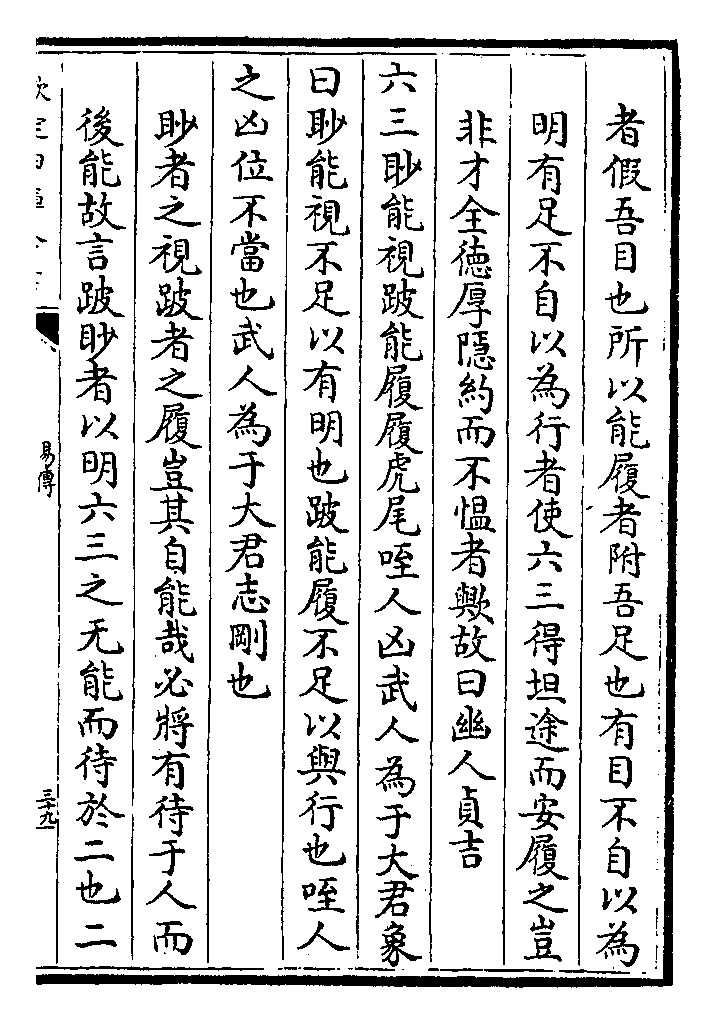 者假吾目也所以能履者附吾足也有目不自以為
明有足不自以為行者使六三得坦途而安履之豈
非才全徳厚隱約而不愠者歟故曰幽人貞吉
六三眇能視跛能履履虎尾咥人凶武人為于大君象
曰眇能視不足以有明也跛能履不足以與行也咥人
之凶位不當也武人為于大君志剛也
眇者之視跛者之履豈其自能哉必將有待于人而
後能故言跛眇者以明六三之无能而待於二也二
易傳
三十九